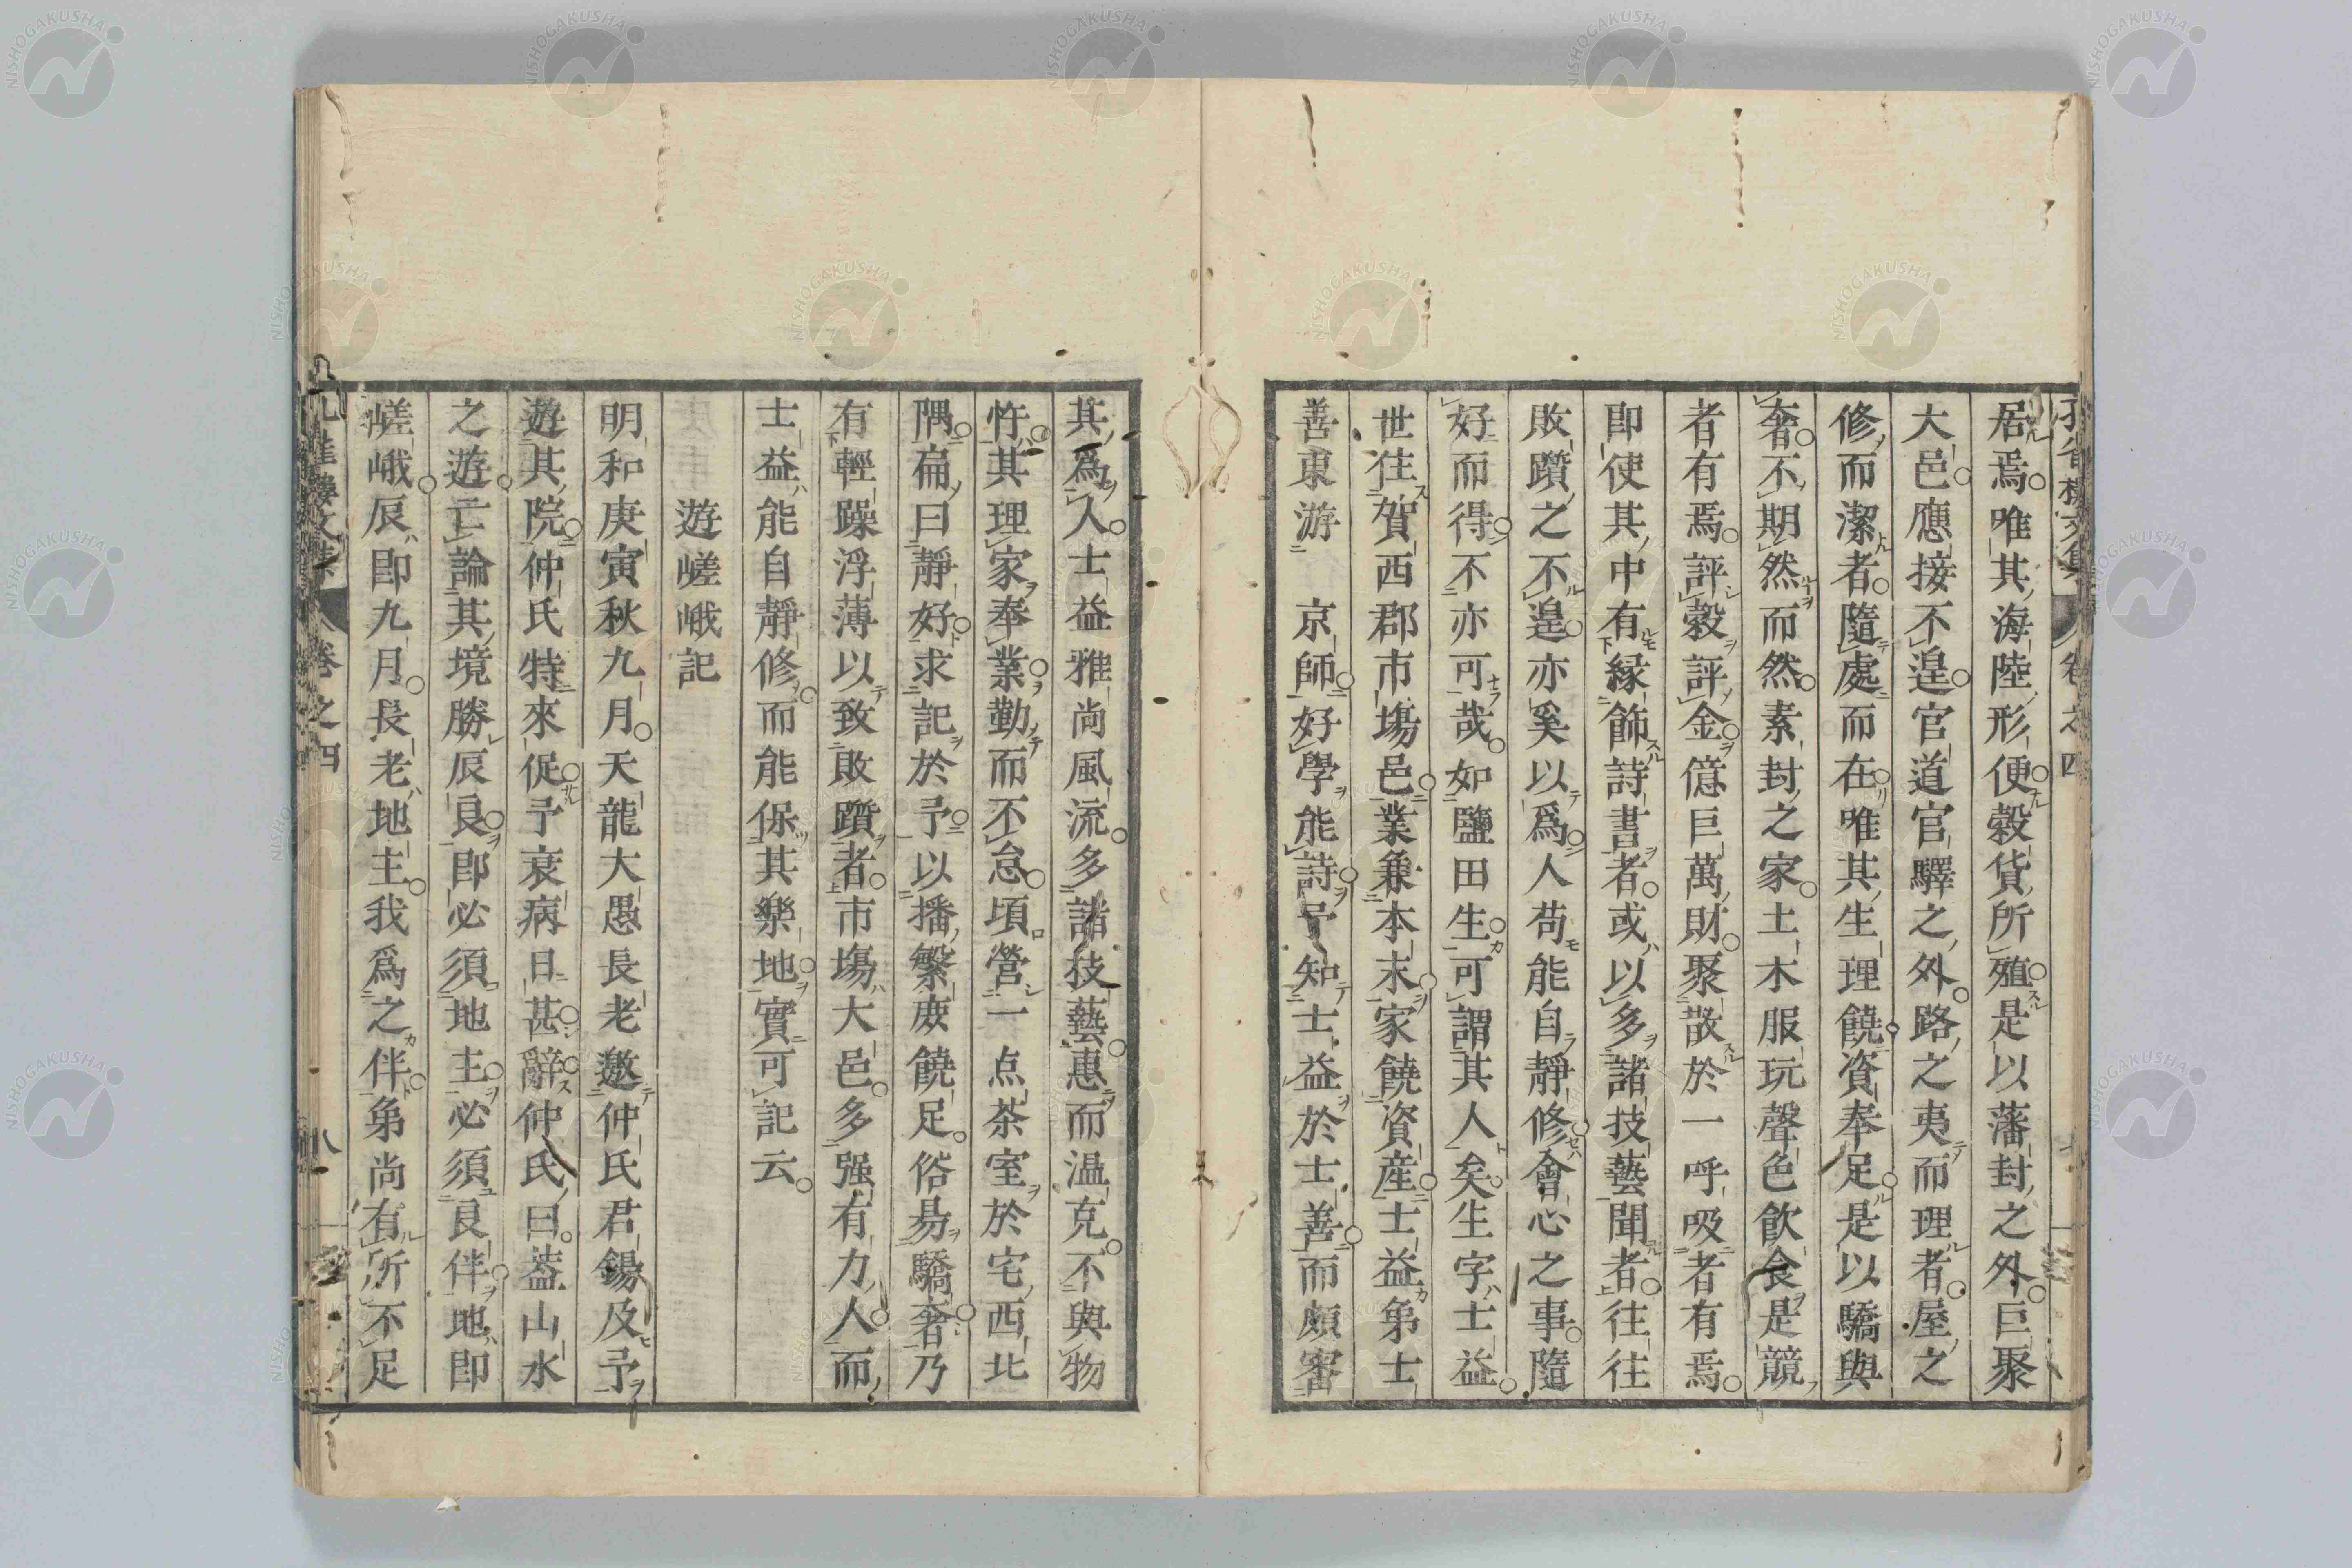 居焉唯其海陸形便穀貨所殖是以藩封之外巨聚
大邑應接不遑官道官驛之外路之夷而理者屋之
修而潔者隨處而在唯其生理饒資奉足是以驕與
奢不期然而然素封之家土木服玩聲色飲食是競
者有焉評穀評金億巨萬財聚散於一呼吸者有焉
即使其中有緣飾詩書者或以多諸技藝聞者往往
敗躓之不遑亦奚以爲人苟能自靜修會心之事隨
好而得不亦可哉如鹽田生可謂其人矣生字士益
世住賀西郡市塲邑業兼本末家饒資產士益弟士
善東游京師好學能詩予知士益於士善而頗審
其爲人士益雅尚風流多諸技藝惠而温克不與物
忤其理家奉業勤而不怠頃營一点茶室於宅西北
隅扁曰靜好求記於予以播繁庶饒足俗易驕奢乃
有輕躁浮薄以致敗躓者市塲大邑多强有力人而
士益能自靜修而能保其樂地實可記云
遊嵯峨記
明和庚寅秋九月天龍大愚長老邀仲氏君錫及予
遊其院仲氏特來促予衰病日甚辭仲氏曰蓋山水
之遊亡論其境勝辰良即必須地主必須良伴地即
嵯峨辰即九月長老地主我爲之伴弟尚有所不足
卷之四
八
NISHOGAKUSHA